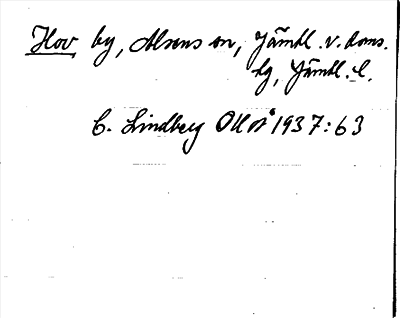 Hov by, Alsens sn, Jämtl. v. doms.
hg, Jämtl. l.
C. Lindberg OUÅ 1937:63